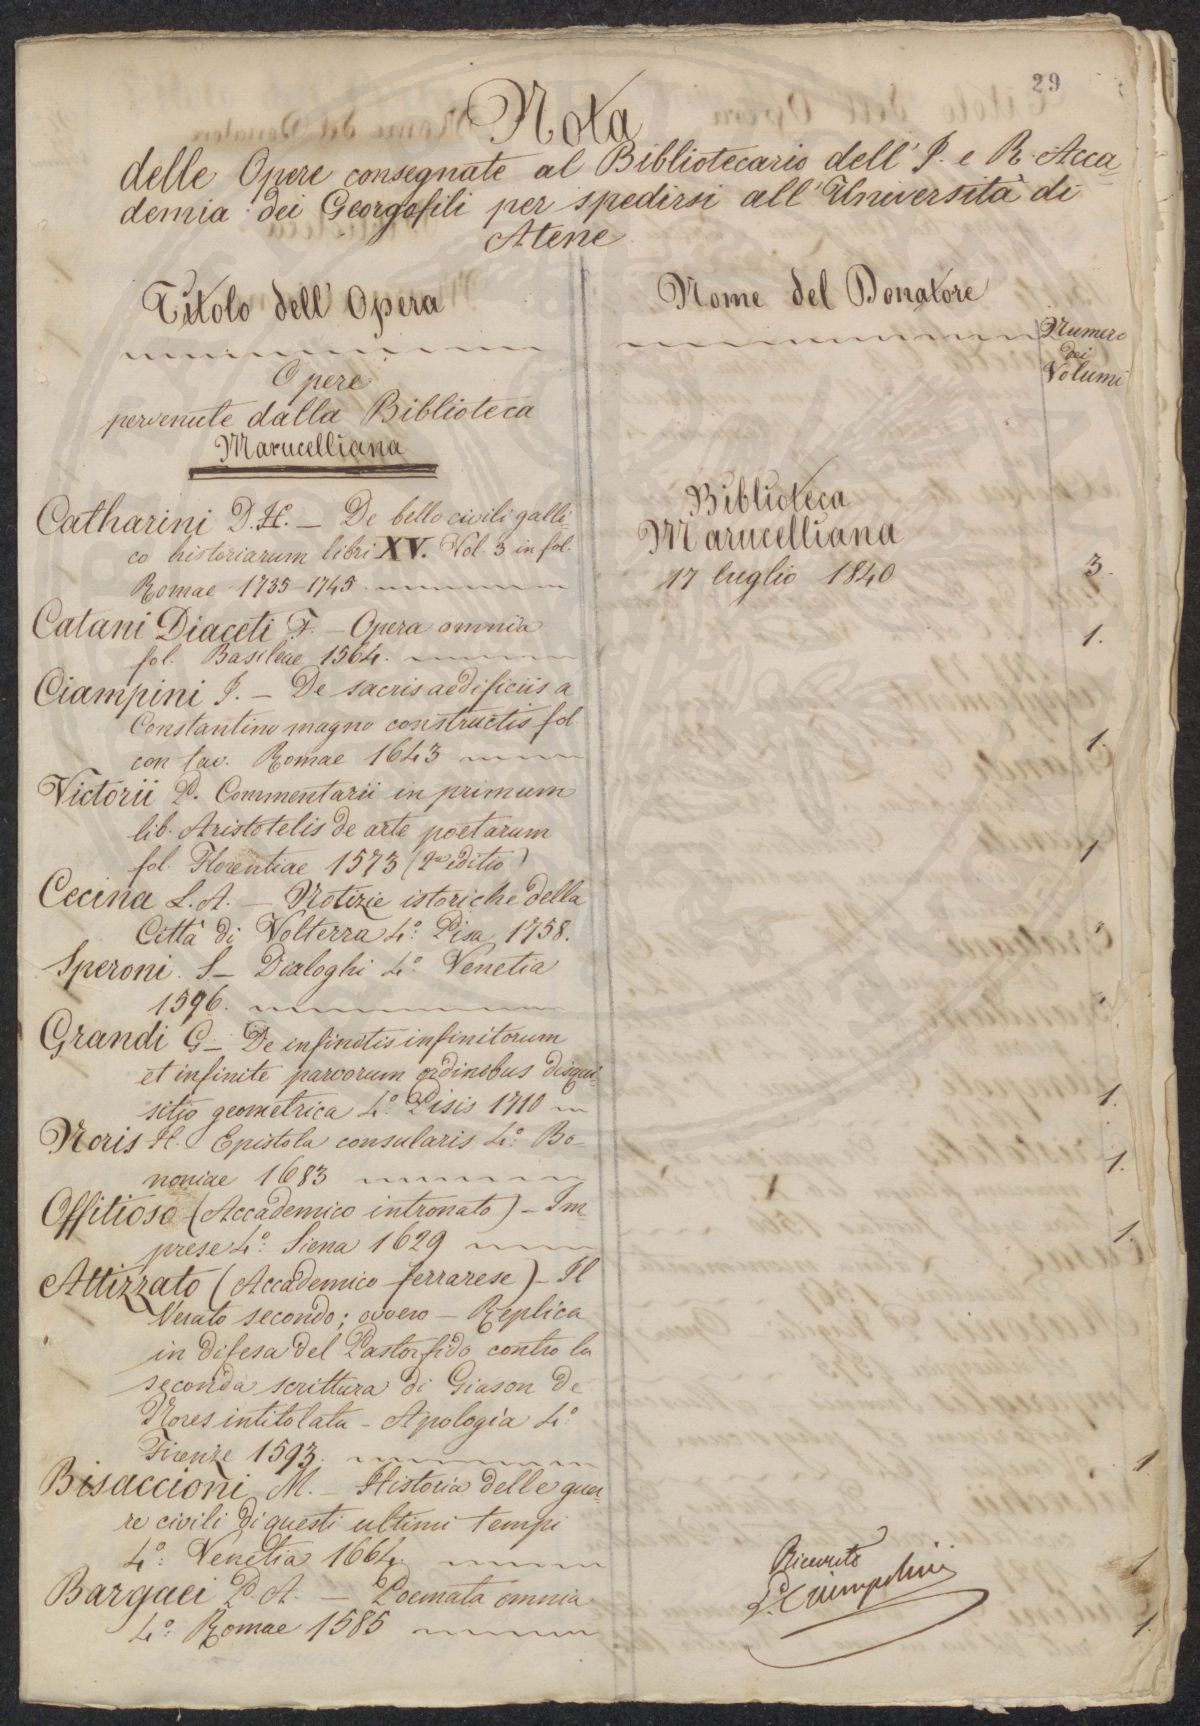 29
Nota
delle Opere consegnate al Bibliotecario dell' I. e R. Acca-
demia dei Georgofili per spedirsi all' Università di
Atene
Titolo dell' Opera
Nome del Donatore
Numero
dei
Volumi
Opere
pervenute dalla Biblioteca
Marucelliana
Biblioteca
Marucelliana
17 luglio 1840
Catharini D. H. — De bello civili galli-
co historiarum libri XV. Vol. 3 in fol.
Romae 1735-1745. 3.
Catani Diaceti F. — Opera omnia
fol. Basileae 1564. 1.
Ciampini I. — De sacris aedificiis a
Constantino magno constructis fol.
con tav. Romae 1643 1.
Victorii P. Commentarii in primum
lib. Aristotelis de arte poetarum
fol. Florentiae 1573 (2a editio) 1
Cecina L. A. — Notizie istoriche della
Città di Volterra 4º: Pisa 1758.
Speroni S — Dialoghi 4º: Venetia
1596.
Grandi G — De infinitis infinitorum
et infinite parvorum ordinibus disqui-
sitio geometrica 4º: Pisis 1710 1.
Noris H. Epistola consularis 4º: Bo-
noniae 1683 1.
Offitioso (Accademico intronato) — Im-
prese 4º: Siena 1629 1.
Attizzato (Accademico ferrarese) — Il
Verato secondo; ovvero — Replica
in difesa del Pastorfido contro la
seconda scrittura di Giason de
Nores intitolata — Apologia 4º:
Firenze 1593. 1
Bisaccioni M. — Historia delle guer-
re civili di questi ultimi tempi
4º: Venetia 1664. 1
Bargaei P. A. — Poemata omnia
4º: Romae 1585 1.
Ricevuto